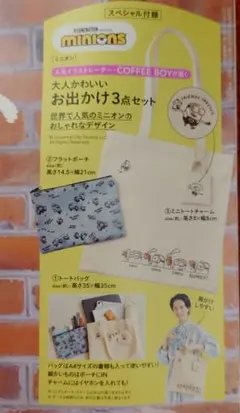 スペシャル付録
ILLUMINATION
minions
［ミニオン］
人気イラストレーター・COFFEE BOYが描く
大人かわいい
お出かけ3点セット
世界で人気のミニオンの
おしゃれなデザイン
©Universal City Studios LLC.
All Rights Reserved.
②フラットポーチ
size（約）：高さ14.5×幅21cm
③ミニトートチャーム
①トートバッグ
size（約）：高さ35×幅35cm
肩がけ
しやすい！
バッグはA4サイズの書類も入って使いやすい！
細かいものはポーチにIN
チャームにはイヤホンを入れても！